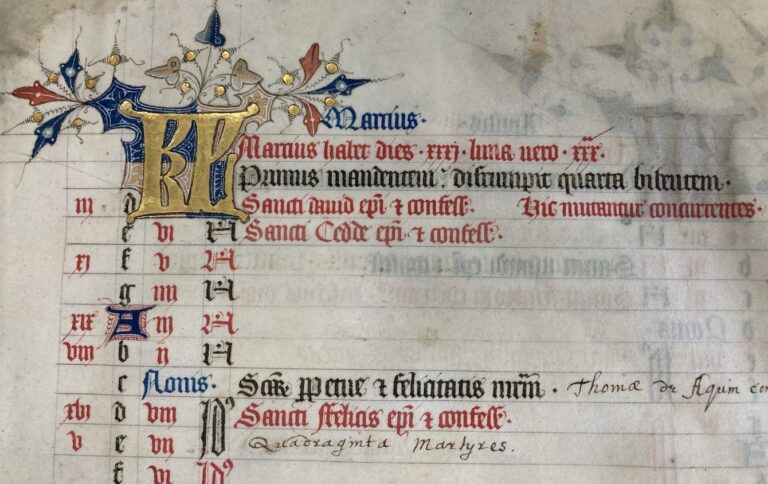 KL Martius.
Martius habet dies · xxxj · luna vero · xxx ·
Primus mandentem : disrumpit quarta bibentem ·
iij d Sancti david epi & confess. Hic mutantur concurrentes ·
e vi N Sancti Cedde epi & confess ·
xj f v N
g iiij N
xix A iij N
viij b ii N
c Nonis · Scar ppetue & felicitatis mrm · Thomæ de Aquin
xvj d viij Id9 Sancti ffelicis epi & confess ·
v e vij Quadraginta Martyres.
f vi Id9